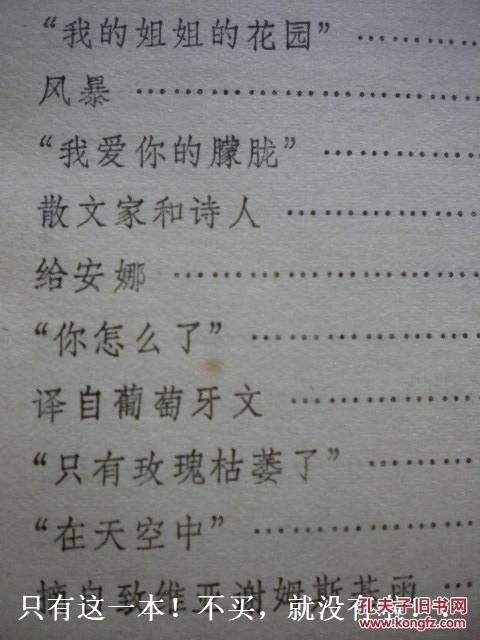 “我的姐姐的花园” ………
风暴 ………………………
“我爱你的朦胧” …………
散文家和诗人 ……………
给安娜 ……………………
“你怎么了” ………………
译自葡萄牙文 ……………
“只有玫瑰枯萎了” ………
“在天空中” ………………
摘自致维亚谢姆斯基函 …
只有这一本！不买，就没有
孔夫子旧书网